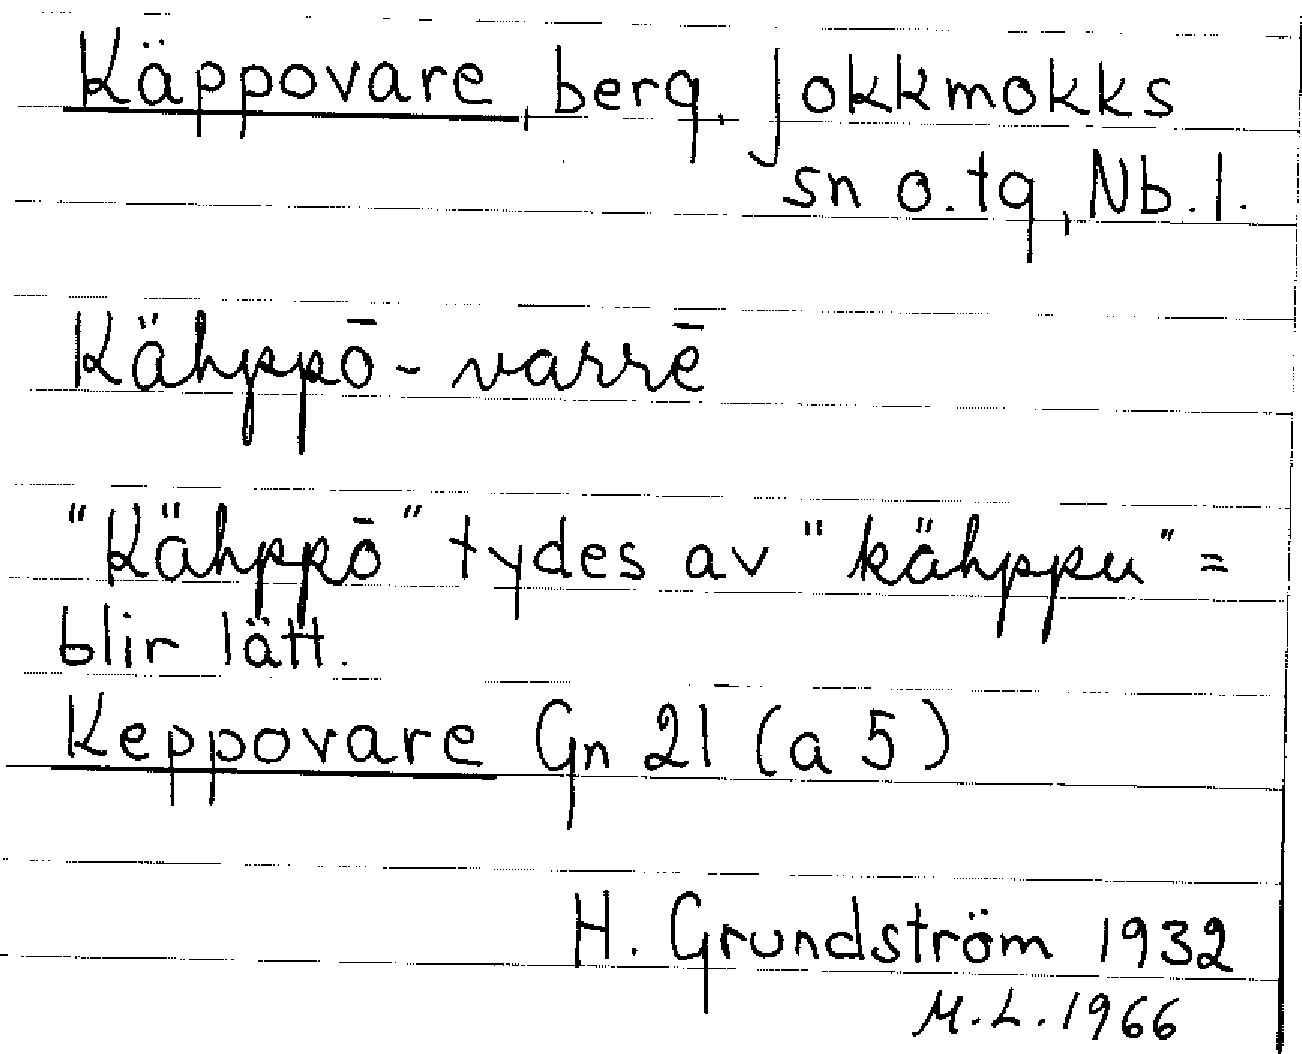 Käppovare, berg, Jokkmokks
sn o. tg, Nb. l.
Kähppō - varrē
"Kähppō" tydes av "kähppu" =
blir lätt.
Keppovare Gn 21 (a 5)
H. Grundström 1932
M.L. 1966